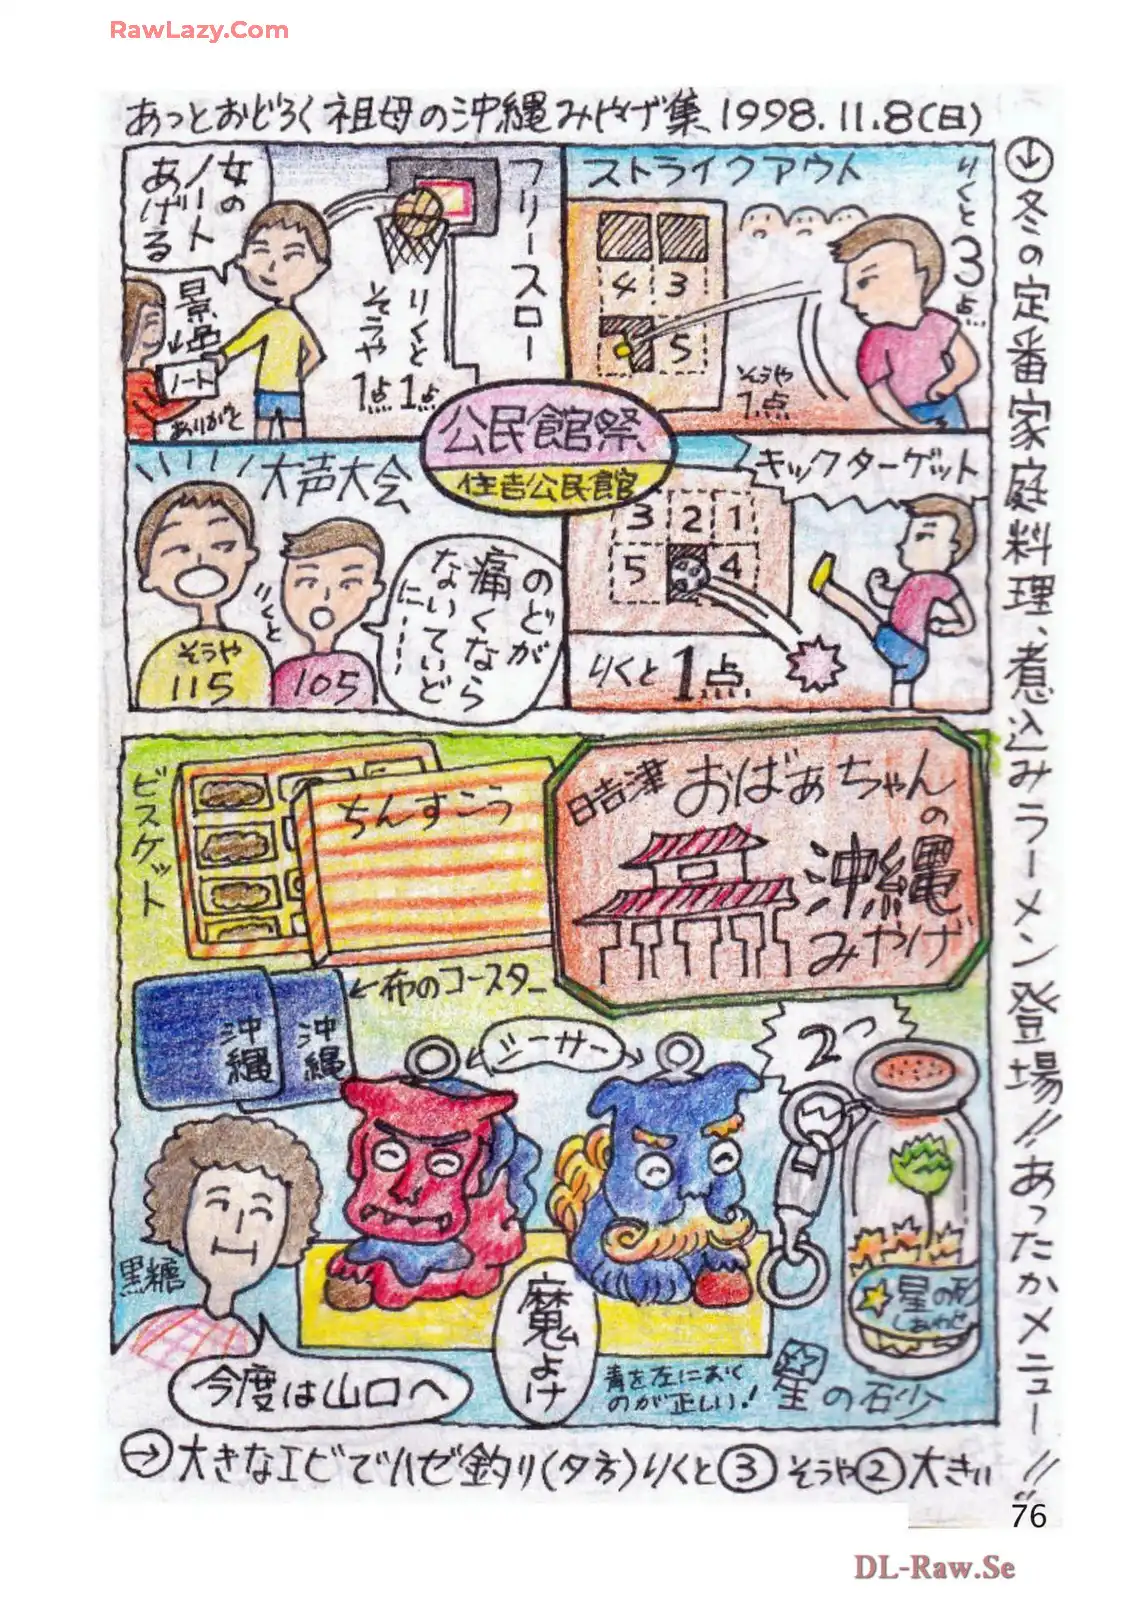 RawLazy.Com
あっとおどろく祖母の沖縄みやげ集 1998.11.8(日)
女の
ノート
あげる
景品
ノート
ありがと
フリースロー
りくと
1点
そうや
1点
ストライクアウト
りくと
3点
4 3
5
そうや
1点
公民館祭
住吉公民館
大声大会
そうや
115
りくと
105
のどが
痛くなら
ないていど
に
キックターゲット
3 2 1
5 4
りくと1点
ビスケット
ちんすこう
日吉津 おばぁちゃんの
沖縄
みやげ
←布のコースター
沖縄
沖縄
シーサー
2つ
黒糖
今度は山口へ
魔よけ
青を左におく
のが正しい!
星の形
しあわせ
星の砂
→大きなエビでハゼ釣り(夕方)りくと③そうや②大きい!!
↓冬の定番家庭料理、煮込みラーメン登場!!あったかメニュー
76
DL-Raw.Se